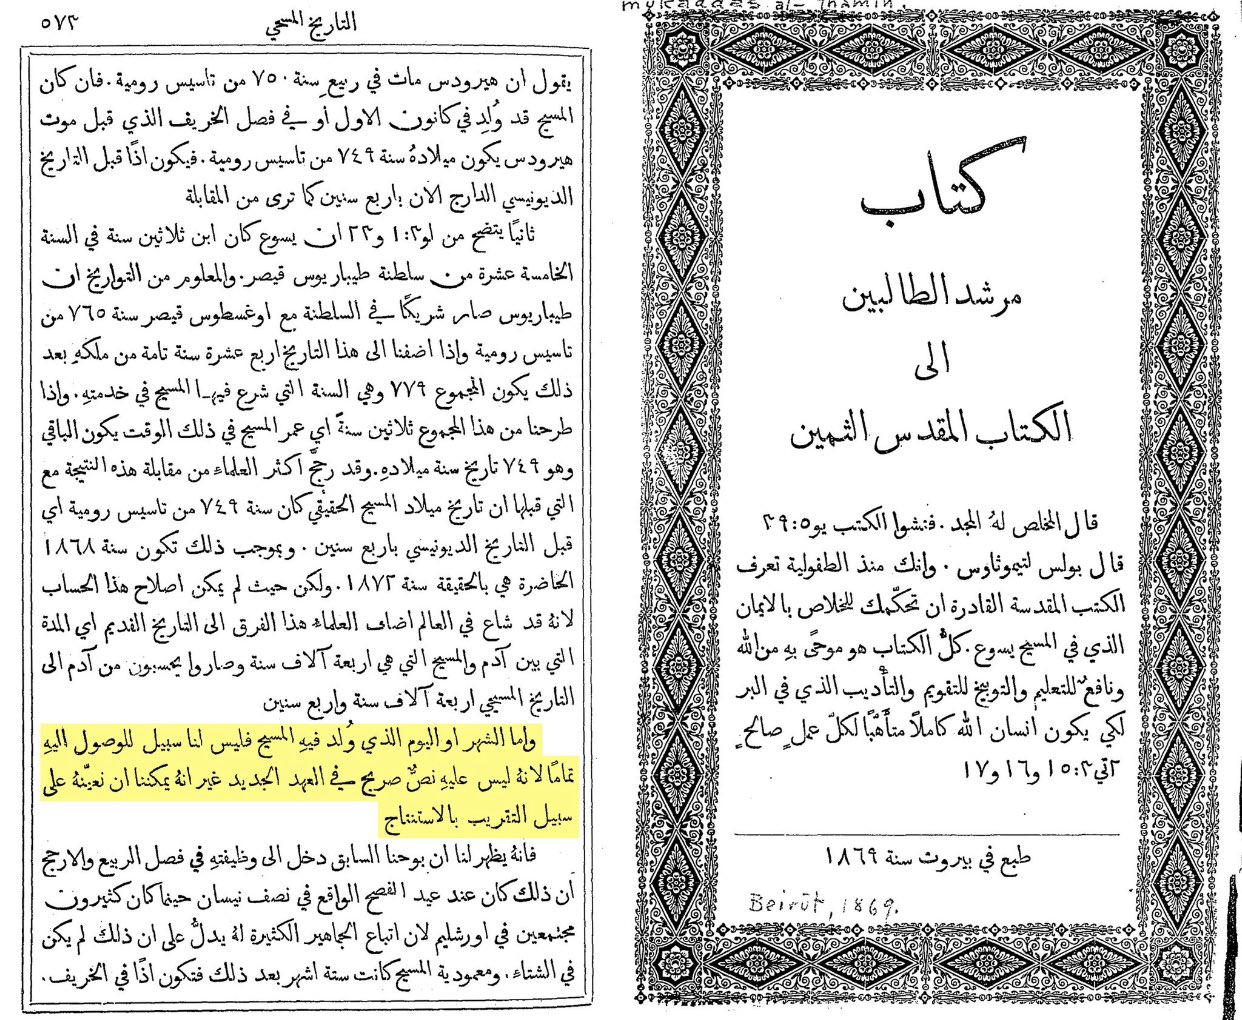 التاريخ المسيحي
٥٧٣
يقول ان هيرودس مات في ربيع سنة ٧٥٠ من تاسيس رومية. فان كان
المسيح قد وُلِد في كانون الاول او في فصل الخريف الذي قبل موت
هيرودس يكون ميلادهُ سنة ٧٤٩ من تاسيس رومية. فيكون اذًا قبل التاريخ
الديونيسي الدارج الان باربع سنين كما ترى من المقابلة
ثانيًا يتضح من لو٣:١ و٢٣ ان يسوع كان ابن ثلاثين سنة في السنة
الخامسة عشرة من سلطنة طيباريوس قيصر. والمعلوم من التواريخ ان
طيباريوس صار شريكًا في السلطنة مع اوغسطوس قيصر سنة ٧٦٥ من
تاسيس رومية واذا اضفنا الى هذا التاريخ اربع عشرة سنة تامة من ملكهِ بعد
ذلك يكون المجموع ٧٧٩ وهي السنة التي شرع فيها المسيح في خدمتهِ. واذا
طرحنا من هذا المجموع ثلاثين سنةً اي عمر المسيح في ذلك الوقت يكون الباقي
وهو ٧٤٩ تاريخ سنة ميلادهِ. وقد رجَّح اكثر العلماء من مقابلة هذه النتيجة مع
التي قبلها ان تاريخ ميلاد المسيح الحقيقي كان سنة ٧٤٩ من تاسيس رومية اي
قبل التاريخ الديونيسي باربع سنين. وبموجب ذلك تكون سنة ١٨٦٨
الحاضرة هي بالحقيقة سنة ١٨٧٢. ولكن حيث لم يمكن اصلاح هذا الحساب
لانهُ قد شاع في العالم اضاف العلماء هذا الفرق الى التاريخ القديم اي المدة
التي بين آدم والمسيح التي هي اربعة آلاف سنة وصاروا يحسبون من آدم الى
التاريخ المسيحي اربعة آلاف سنة واربع سنين
واما الشهر او اليوم الذي وُلد فيهِ المسيح فليس لنا سبيل للوصول اليهِ
تمامًا لانهُ ليس عليهِ نصٌّ صريح في العهد الجديد غير انهُ يمكننا ان نعيّنهُ على
سبيل التقريب بالاستنتاج
فانهُ يظهر لنا ان يوحنا السابق دخل الى وظيفتهِ في فصل الربيع والارجح
ان ذلك كان عند عيد الفصح الواقع في نصف نيسان حينما كان كثيرون
مجتمعين في اورشليم لان اتباع الجماهير الكثيرة لهُ يدلُّ على ان ذلك لم يكن
في الشتاء. ومعمودية المسيح كانت ستة اشهر بعد ذلك فتكون اذًا في الخريف.
mukaddas al-thamin.
كتاب
مرشد الطالبين
الى
الكتاب المقدس الثمين
قال المخلص لهُ المجد. فتشوا الكتب يو٥:٣٩
قال بولس لتيموثاوس. وانك منذ الطفولية تعرف
الكتب المقدسة القادرة ان تحكّمك للخلاص بالايمان
الذي في المسيح يسوع. كلُّ الكتاب هو موحًى بهِ من الله
ونافعٌ للتعليم والتوبيخ للتقويم والتأديب الذي في البر
لكي يكون انسان الله كاملاً متأَهّبًا لكلّ عملٍ صالحٍ
٢تي٣:١٥ و١٦ و١٧
طبع في بيروت سنة ١٨٦٩
Beirūt, 1869.